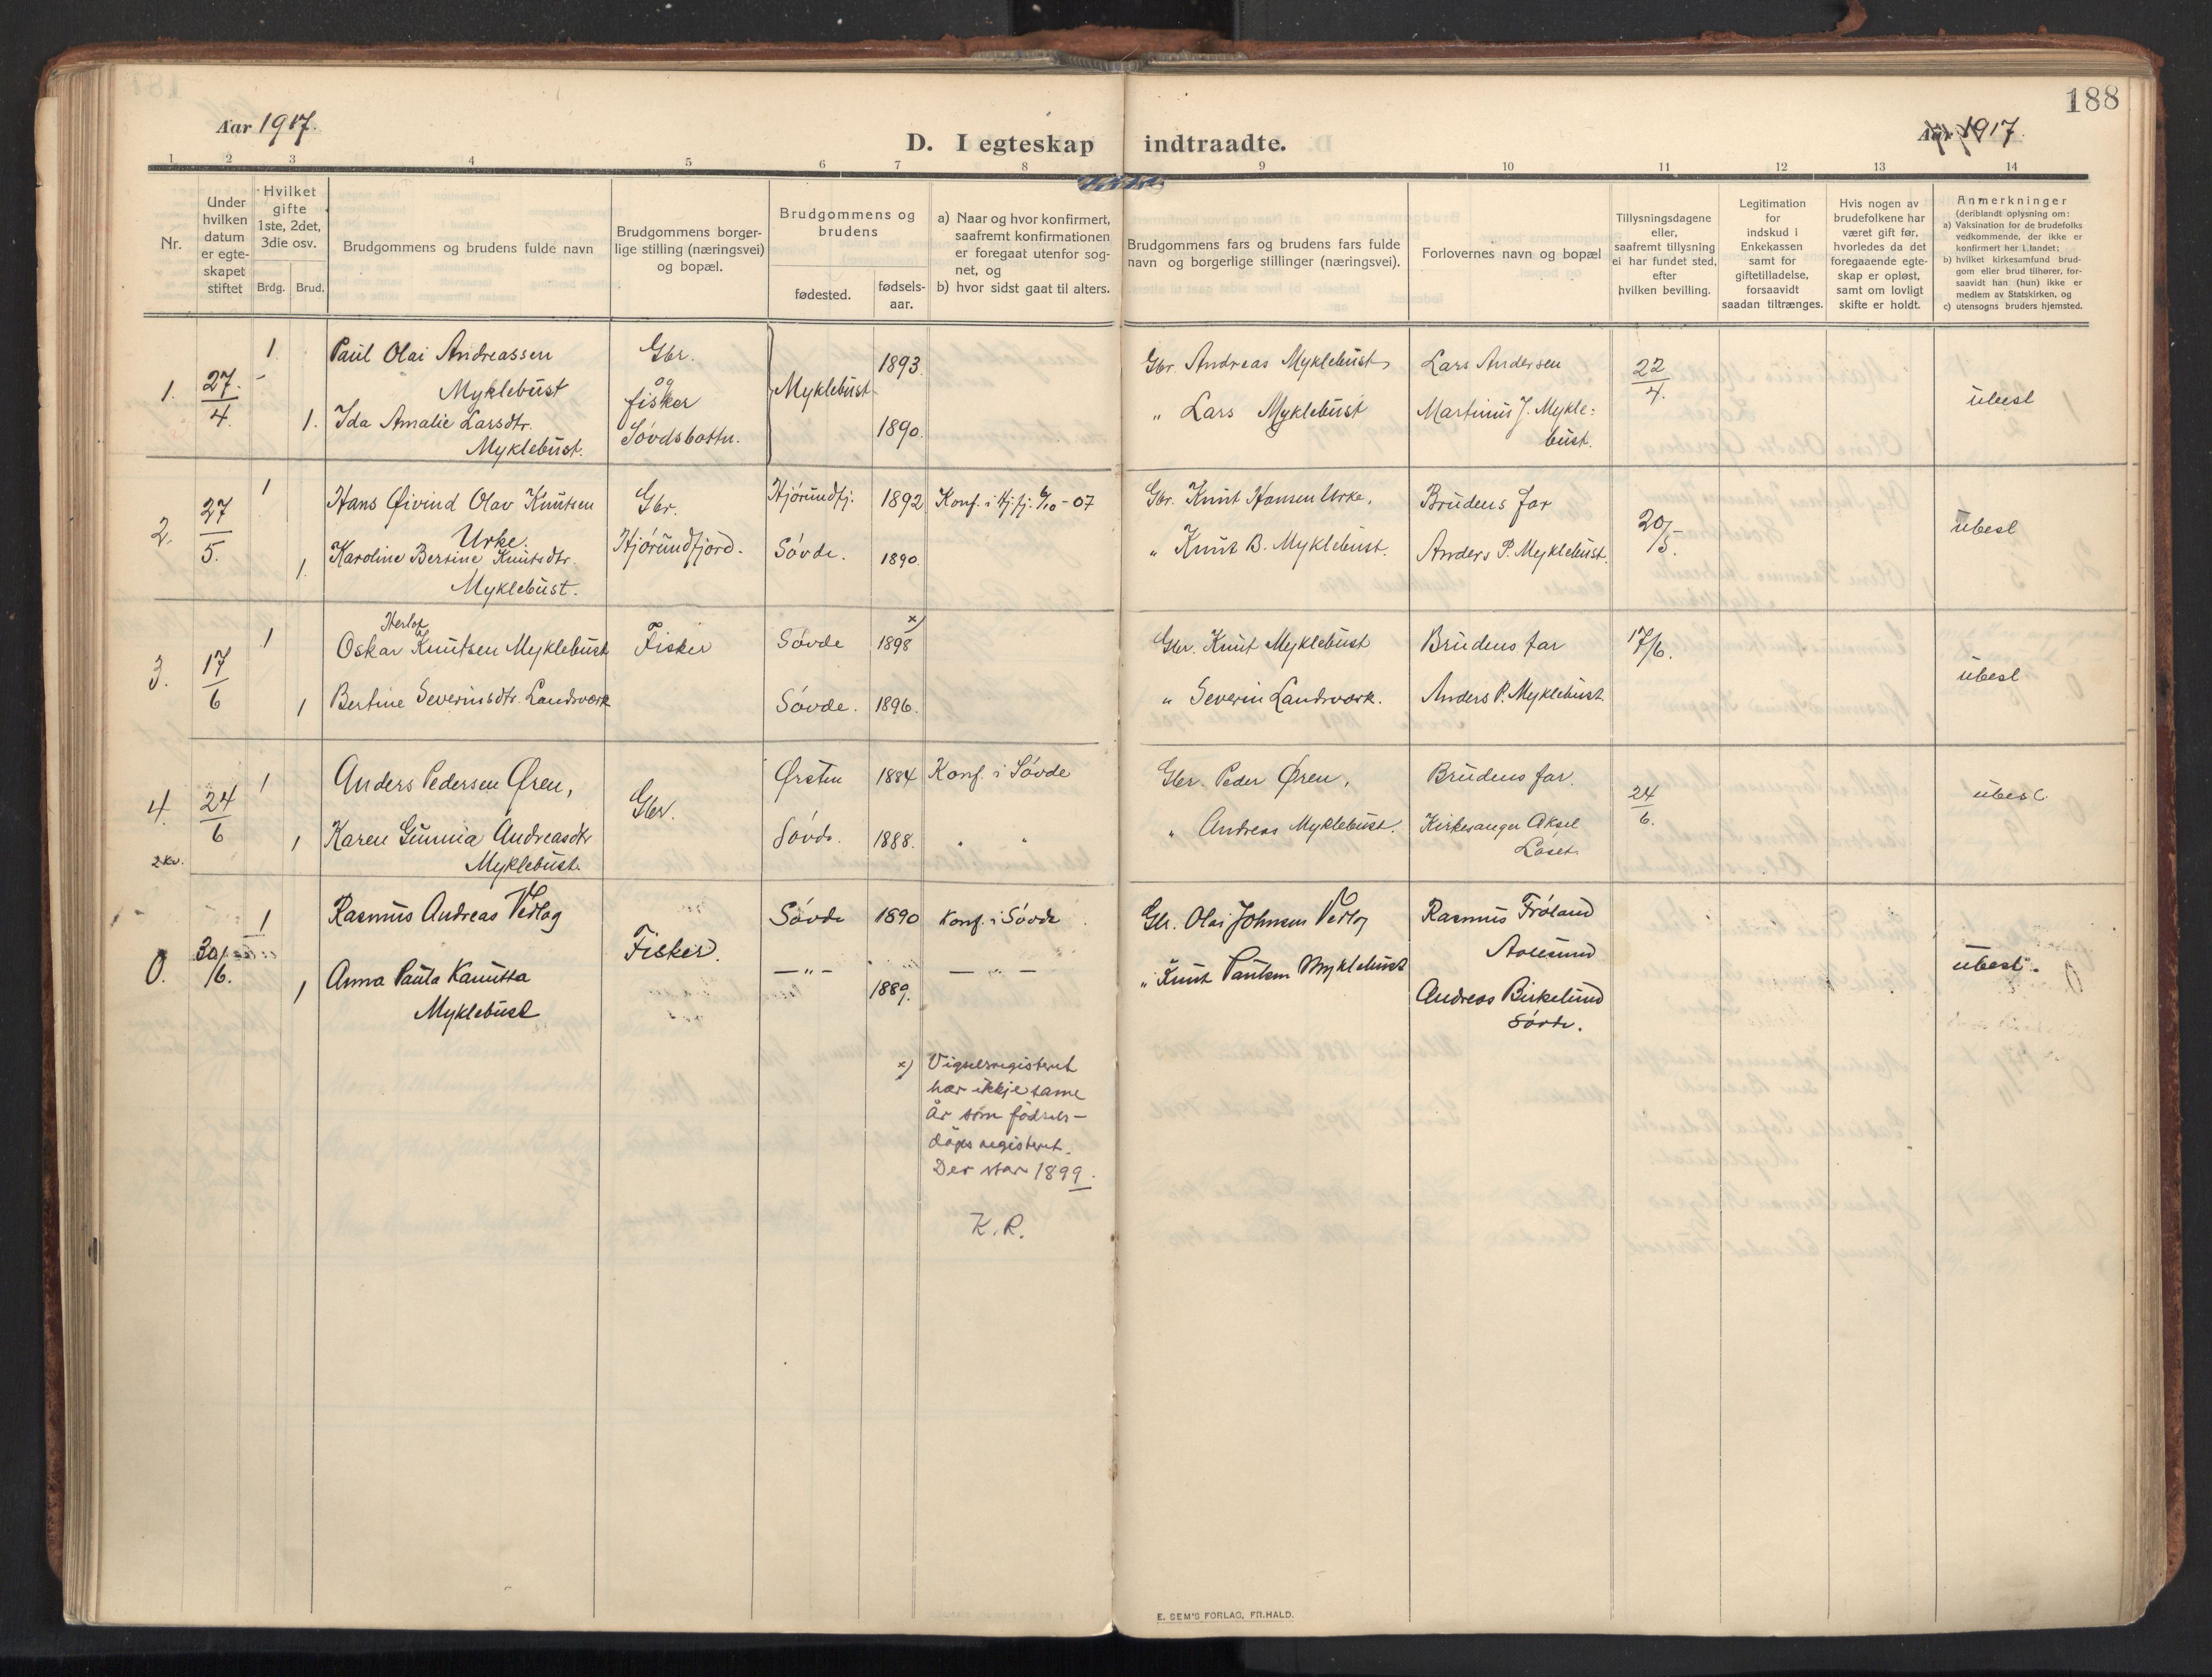 188
Aar 1917.
Aar 1917.
D. I egteskap indtraadte.
1 2 3 4 5 6 7 8 9 10 11 12 13 14
Nr.
Under
hvilken
datum
er egte-
skapet
stiftet
Hvilket
gifte
1ste, 2det,
3die osv.
Brdg. Brud.
Brudgommens og brudens fulde navn
Brudgommens borger-
lige stilling (næringsvei)
og bopæl.
Brudgommens og
brudens
fødested.
fødsels-
aar.
a) Naar og hvor konfirmert,
saafremt konfirmationen
er foregaat utenfor sog-
net, og
b) hvor sidst gaat til alters.
Brudgommens fars og brudens fars fulde
navn og borgerlige stillinger (næringsvei).
Forlovernes navn og bopæl
Tillysningsdagene
eller,
saafremt tillysning
ei har fundet sted,
efter
hvilken bevilling.
Legitimation
for
indskud i
Enkekassen
samt for
giftetilladelse,
forsaavidt
saadan tiltrænges.
Hvis nogen av
brudefolkene har
været gift før,
hvorledes da det
foregaaende egte-
skap er opløst,
samt om lovligt
skifte er holdt.
Anmerkninger
(deriblandt oplysning om:
a) Vaksination for de brudefolks
vedkommende, der ikke er
konfirmert her i landet;
b) hvilket kirkesamfund brud-
gom eller brud tilhører, for-
saavidt han (hun) ikke er
medlem av Statskirken, og
c) utensogns bruders hjemsted.
1. 27/4. 1
Paul Olai Andreassen
Myklebust
1. Ida Amalie Larsdtr.
Myklebust.
Gbr.
og
fisker
Søvdsbotn.
Myklebust
1893.
1890.
Gbr. Andreas Myklebust,
" Lars Myklebust
Lars Andersen
Martinus J. Mykle-
bust.
22/4.
ubesl
2. 27/5. 1
Hans Øivind Olav Knutsen
Urke.
1. Karoline Bersine Knutsdtr.
Myklebust.
Gbr.
Hjørundfjord.
Hjørundfj. 1892 Konf. i Hj.fj. 6/10-07
Søvde. 1890.
Gbr. Knut Hansen Urke,
" Knut B. Myklebust.
Brudens far
Anders P. Myklebust.
20/5.
ubesl
3. 17/6 1
Herlof
Oskar Knutsen Myklebust
1 Bertine Severinsdtr. Landsverk
Fisker
Søvde x) 1898
Søvde. 1896.
Gbr. Knut Myklebust
" Severin Landsverk.
Brudens far
Anders P. Myklebust.
17/6.
ubesl
4. 24/6 1
Anders Pedersen Øren,
1 Karen Gunnia Andreasdtr
Myklebust.
2 kv.
Gbr.
Ørsten 1884 Konf. i Søvde
Søvde. 1888. " "
Gbr. Peder Øren,
" Andreas Myklebust.
Brudens far.
Kirkesanger Aksel
Løset.
24/6.
ubesl.
0. 30/6. 1
Rasmus Andreas Vedlog
1 Anna Paula Kanutta
Myklebust
Fisker.
Søvde 1890 Konf. i Søvde
— " — 1889. — " —
Gbr. Olai Johnsen Vedlog
" Knut Paulsen Myklebust
Rasmus Frøland
Aalesund
Andreas Birkelund
Søvde.
ubesl.
x) Vigselsregisteret
har ikkje same
år som fødsels-
dåps registeret.
Der står 1899.
K. R.
E. SEM'S FORLAG, FR.HALD.